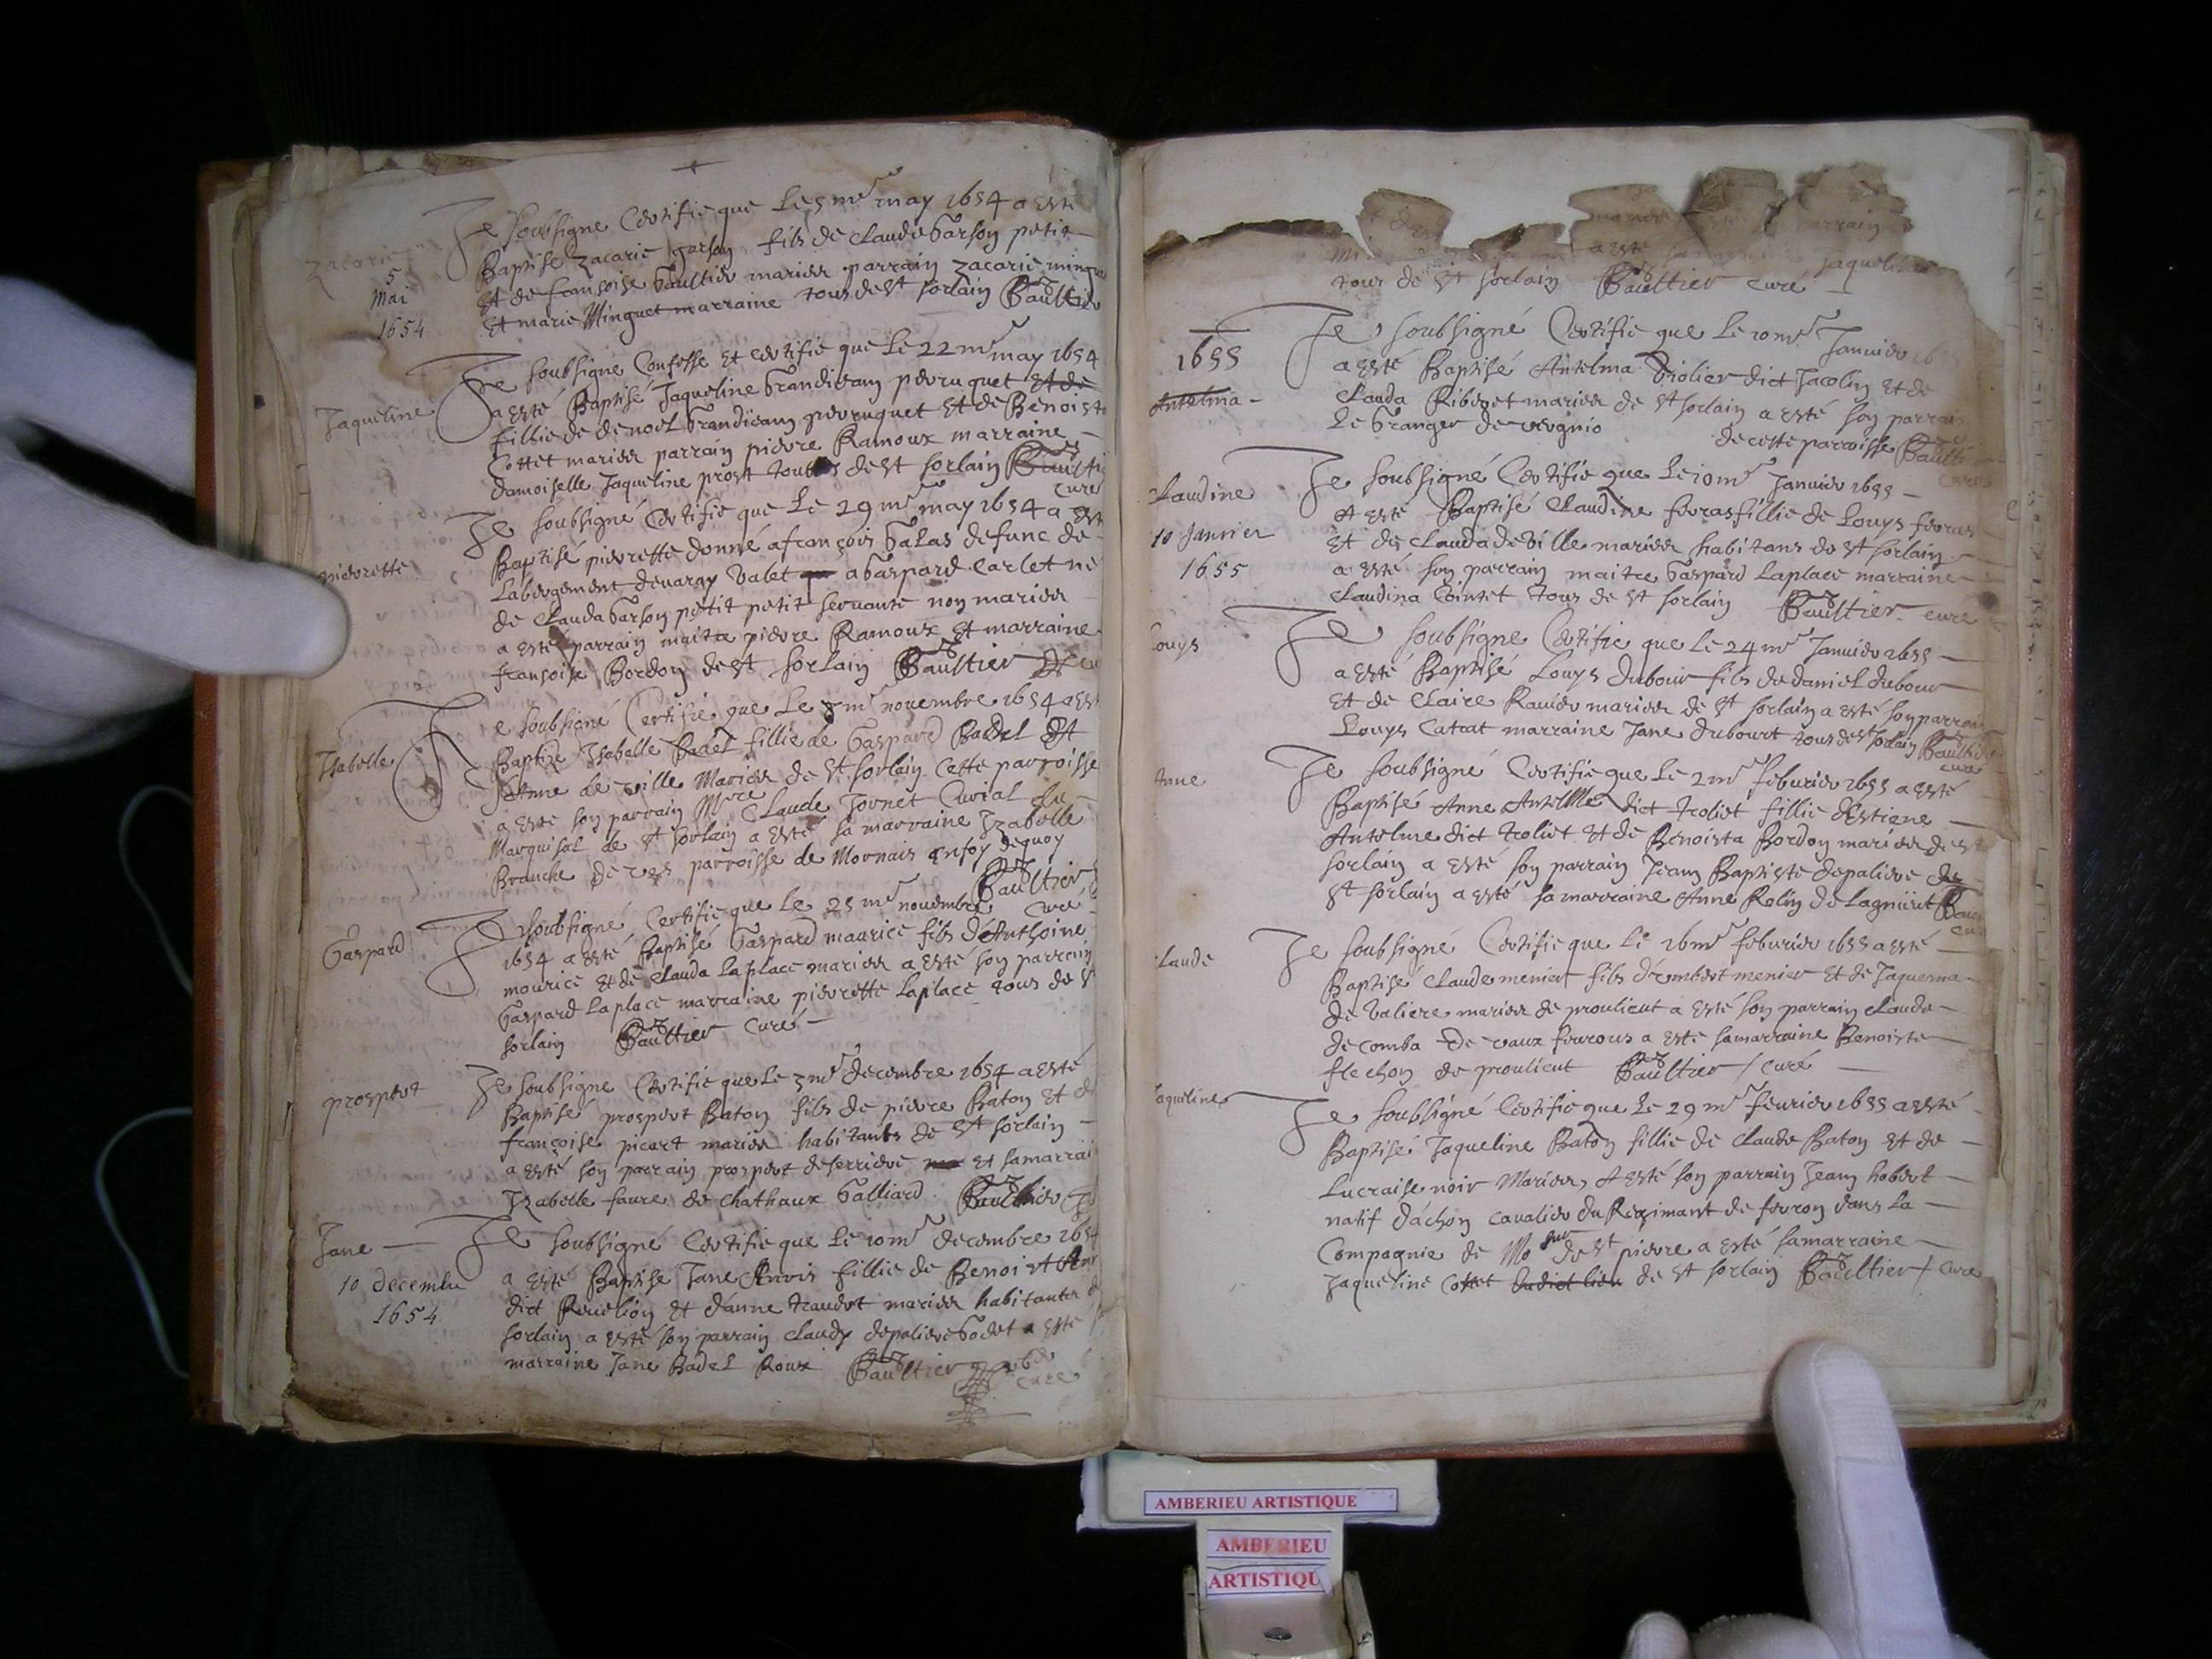 Zacarie
5
Mai
1654
Je soubsigné Certifie que Le 5me may 1654 a esté
Baptisé Zacarie garson fils de Claude Garson petit
Et de françoise Gaultier mariés parrain Zacarie mingue
Et marie Minguet marraine tous de St sorlain Gaultier
Jaqueline
Je soubsigné Confesse Et Certifie que Le 22me may 1654
a esté Baptisé Jaqueline Grandieam perruquet Et de
fillie de de noel Grandieam perruquet Et de Benoiste
Cottet mariés parrain pierre Ramoux marraine
damoiselle Jaqueline prost tous de St sorlain Gaultier
curé
pierrette
Je soubsigné Certifie que Le 29me may 1654 a esté
Baptisé pierrette donné a françois Galas defunc de
Labergement devaray valet a Gaspard Carlet
de Clauda Garson petit petit servante non mariés
a esté parrain maitre pierre Ramoux Et marraine
françoise Bordon de St sorlain Gaultier
Isabelle
Je soubsigné Certifie que Le 8me novembre 1654 a esté
Baptizé Isabelle Badel fillie de Gaspard Badel Et
d'Anne de ville Mariés de St sorlain Cette parroisse
a esté son parrain Mtre Claude Jornet Curial du
Marquisat de St sorlain a esté sa marraine Izabelle
Branche de parroisse de Mornais enfoy dequoy
Gaultier
curé
Gaspard
Je soubsigné Certifie que Le 25me novembre
1654 a esté Baptisé Gaspard maurice fils d'Anthoine
mourice Et de Clauda Laplace mariés a esté son parrain
Gaspard Laplace marraine pierrette Laplace tous de St
sorlain Gaultier curé
prospert
Je soubsigné Certifie que Le 3me decembre 1654 a esté
Baptisé prospert Baton fils de pierre Baton Et de
françoise picart mariés habitants de St sorlain
a esté son parrain prospert deserriere Et sa marrai
Izabelle faure de Chathaux Galliard Gaultier
Jane
10 decembre
1654
Je soubsigné Certifie que Le 10me decembre 1654
a esté Baptisé Jane fillie de Benoist
dict Revelion Et d'anne traudet mariés habitants
sorlain a esté son parrain Claudy depaliere Godet a esté
marraine Jane Badel Roux Gaultier
curé
parrain
a esté Jaqueline
tous de St sorlain Gaultier curé
1655
Antelma
Je soubsigné Certifie que Le 10me Januier
a esté Baptisé Antelma Violier dict Jacolin Et de
Clauda Riberet mariés de St sorlain a esté son parrain
Le Granger de vergnio de cette parroisse Gaulti
Claudine
10 Janvier
1655
Je soubsigné Certifie que Le 10me Januier 1655
A esté Baptisé Claudine ferras fillie de Louys ferras
Et de Clauda de Ville mariés habitans de St sorlain
a esté son parrain maitre Gaspard Laplace marraine
Claudina Cointet tous de St sorlain Gaultier curé
Louys
Je soubsigné Certifie que Le 24me Januier 1655
a esté Baptisé Louys Dubour fils de daniel dubour
Et de Claire Ravier mariés de St sorlain a esté son parrain
Louys Catrat marraine Jane Dubourt tous de St sorlain Gaultier
curé
Anne
Je soubsigné Certifie que Le 2me feburier 1655 a esté
Baptisé Anne Antelme dict troliet fillie d'Estiene
Antelme dict troliet Et de Benoista Bordon mariés de St
sorlain a esté son parrain Jeam Baptiste depaliere de
St sorlain a esté sa marraine Anne Rolin de Lagnieut
Claude
Je soubsigné Certifie que Le 16me feburier 1655 a esté
Baptisé Claude menier fils d'rombert menier Et de Jaquema
de valiere mariés de proulieut a esté son parrain Claude
de comba de vaux fevrous a esté sa marraine Benoiste
flechon de proulieut Gaultier / curé
Jaqueline
Je soubsigné Certifie que Le 29me feurier 1655 a esté
Baptisé Jaqueline Baton fillie de Claude Baton Et de
Lucraise noir Mariés, A esté son parrain Jeam hobert
natif d'achon cavalier du Regimant de ferron dans La
Compagnie de Mo sur de St pierre a esté sa marraine
Jaqueline Cottet dudict lieu de St sorlain Gaultier / curé
AMBERIEU ARTISTIQUE
AMBERIEU
ARTISTIQU